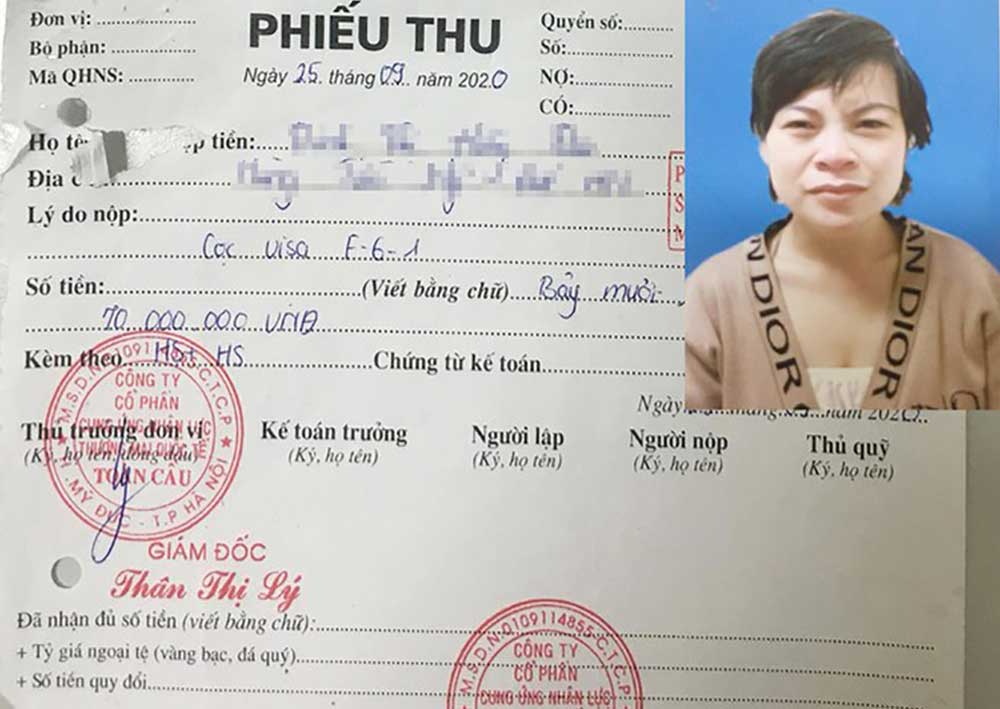 Đơn vị:
Bộ phận:
Mã QHNS:
PHIẾU THU
Ngày 25 tháng 09 năm 2020
Quyển số:
Số:
NỢ:
CÓ:
Họ tê p tiền:
Địa
Lý do nộp:
Cọc visa F-6-1
Số tiền: (Viết bằng chữ) Bảy mươi
70.000.000 VNĐ
Kèm theo HS+ HS Chứng từ kế toán
Ngày tháng năm 2020
Thủ trưởng đơn vị
(Ký, họ tên, đóng dấu)
Kế toán trưởng
(Ký, họ tên)
Người lập
(Ký, họ tên)
Người nộp
(Ký, họ tên)
Thủ quỹ
(Ký, họ tên)
CÔNG TY
CỔ PHẦN
CUNG ỨNG NHÂN LỰC
THƯƠNG MẠI QUỐC TẾ
TOÀN CẦU
H.MỸ ĐỨC - T.P HÀ NỘI
GIÁM ĐỐC
Thân Thị Lý
Đã nhận đủ số tiền (viết bằng chữ):
+ Tỷ giá ngoại tệ (vàng bạc, đá quý)
+ Số tiền quy đổi
M.S.D.N:0109114855.C.T.C.P
CÔNG TY
CỔ PHẦN
CUNG ỨNG NHÂN LỰC
N DIOR
AN DIOR